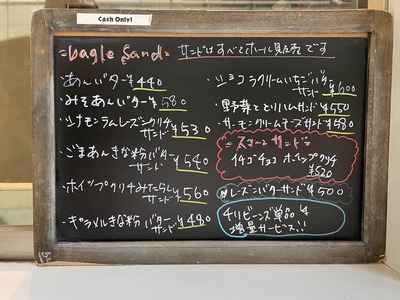 Cash Only!
=bagle Sand= サンドはすべてホール見本です
・あんバター¥440
・みそあんバター¥580
・シナモンラムレーズンクリチサンド¥530
・ごまあんきな粉バターサンド¥540
・ホイップクリチみたらしサンド¥560
・キャラメルきな粉バターサンド¥480
・ショコラクリームいちごバターサンド¥600
・野菜ととりハムサンド¥550
・サーモンクリームチーズサンド¥580
=スコーンサンド=
イチゴチョコホイップクリチ
¥520
レーズンバターサンド¥500
チリビーンズ単品も
増量サービス!!